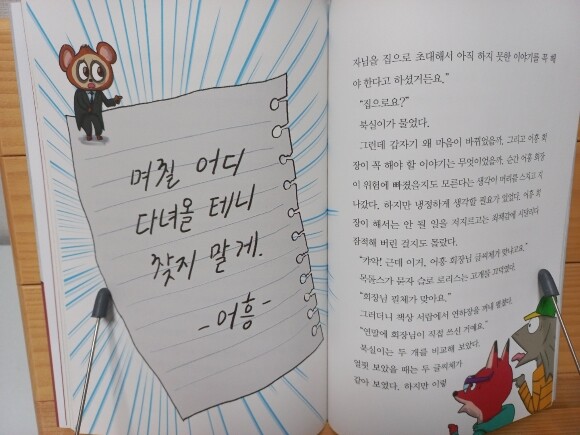 며칠 어디
다녀올 테니
찾지 말게.
-어흥-
자님을 집으로 초대해서 아직 하지 못한 이야기를 꼭 해
야 한다고 하셨거든요."
"집으로요?"
북실이가 물었다.
그런데 갑자기 왜 마음이 바뀌었을까, 그리고 어흥 회
장이 꼭 해야 할 이야기는 무엇이었을까. 순간 어흥 회장
이 위험에 빠졌을지도 모른다는 생각이 머리를 스치고 지
나갔다. 하지만 냉정하게 생각할 필요가 있었다. 어흥 회
장이 해서는 안 될 일을 저지르고는 죄책감에 시달리다
잠적해 버린 걸지도 몰랐다.
"가악! 근데 이거, 어흥 회장님 글씨체가 맞나고요."
목돌스가 묻자 슬로 로리스는 고개를 끄덕였다.
"회장님 필체가 맞아요."
그러더니 책상 서랍에서 연하장을 꺼내 펼쳤다.
"연말에 회장님이 직접 쓰신 거예요."
북실이는 두 개를 비교해 보았다.
얼핏 보았을 때는 두 글씨체가
같아 보였다. 하지만 이렇